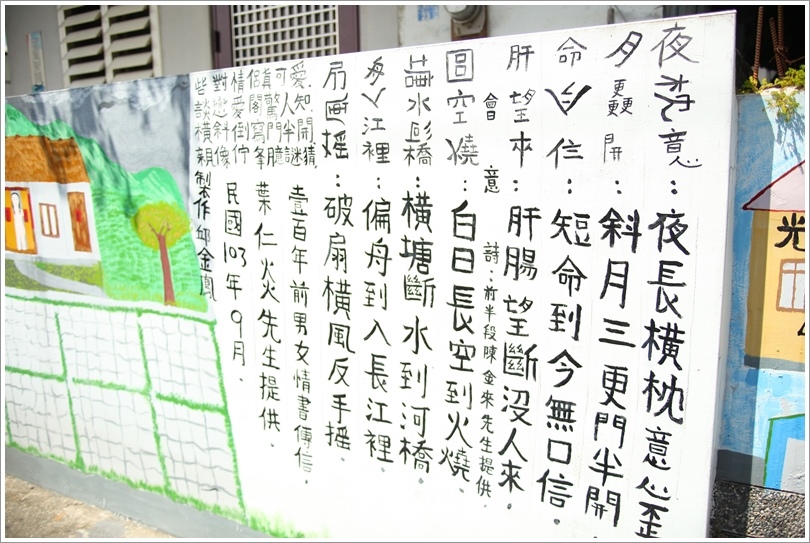 夜 意:夜長橫枕意心歪
月更開:斜月三更門半開
命 :短命到今無口信.
肝望 :肝腸望斷沒人來.
會意詩:前半段陳金來先生提供.
空燒:白日長空到火燒.
水 橋:橫塘斷水到河橋.
舟入江裡:偏舟到入長江裡.
搖:破扇橫風反手搖.
愛.知開猜
可人半謎
真驚門臆
個閣寫
情愛倒佇
對 斜像
些談橫親
壹百年前男女情書傳信.
葉仁炎先生提供.
民國103年9月.
製作 邱金鳳
光